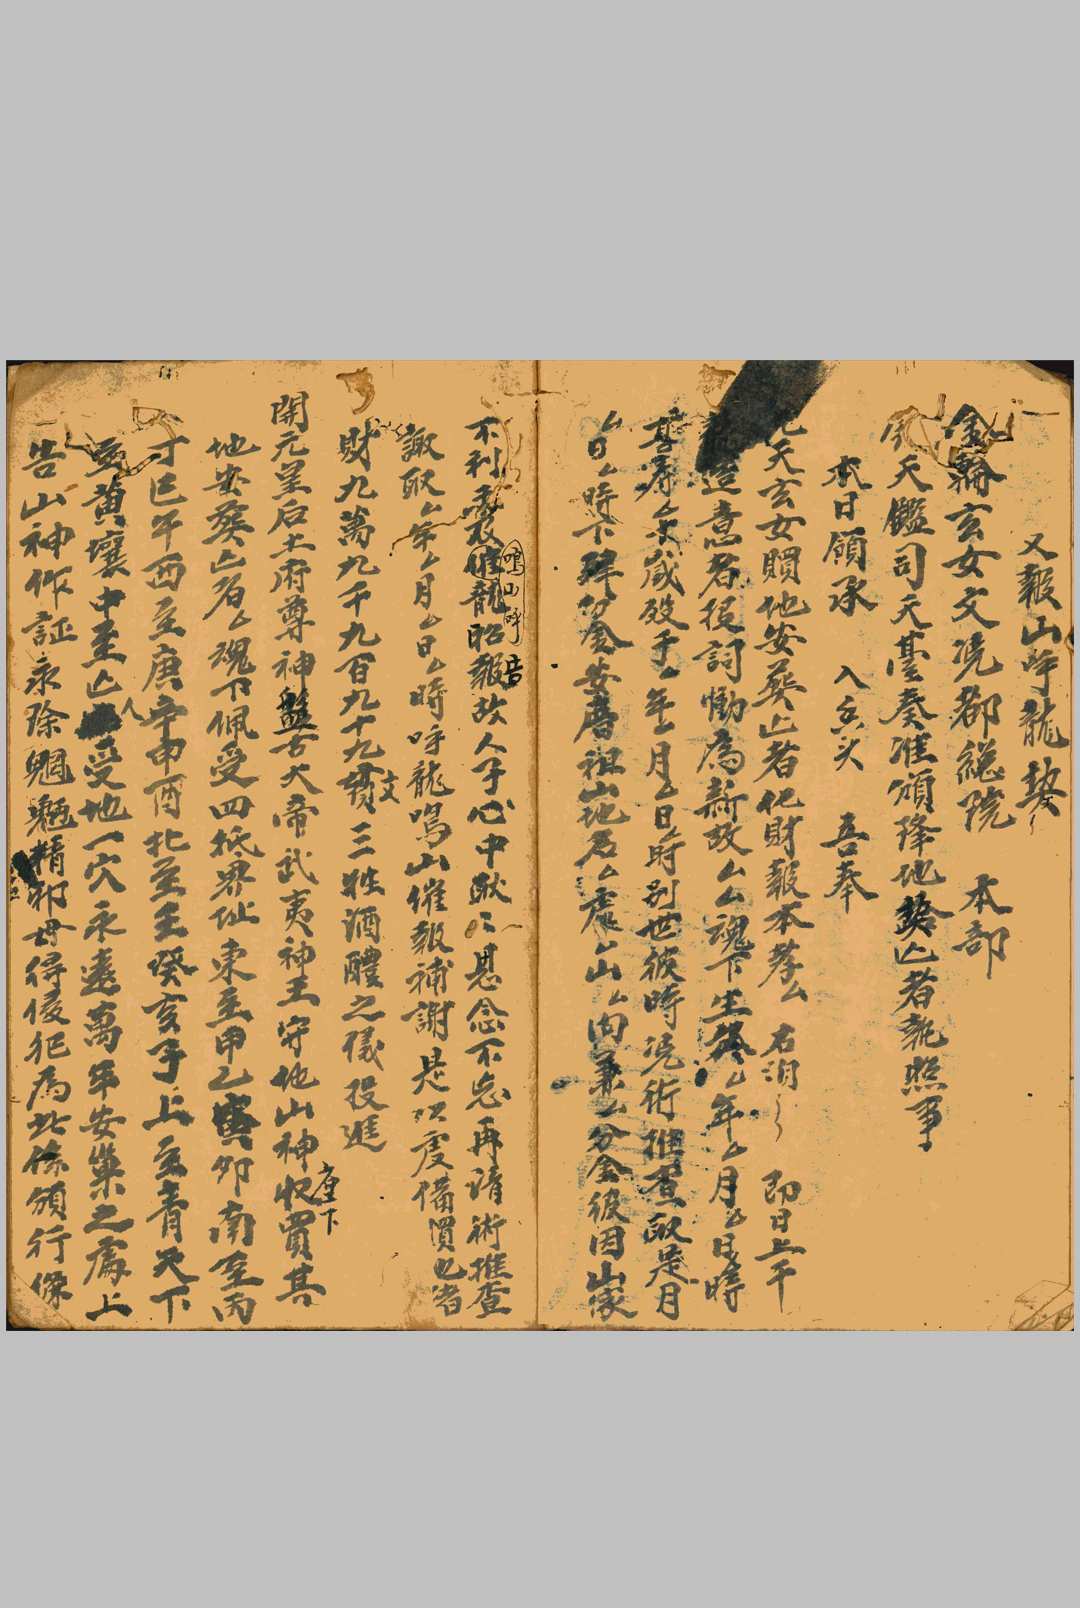 又報山呼龍契
金輪玄女文憑都總院 本部
天鑑司天臺奏准頒降地契亡者執照事
本日領承 入意头 吾奉
天玄女買地安葬亡者化財報本孝厶 右泪 即日上干
造意者投詞慟為新故厶厶魂下生終厶年厶月厶日時
享壽厶十歲歿于厶年厶月厶日時別世彼時憑術推查取是月
厶日厶時下 安唇祖山地名厶處厶山厶向兼厶分金彼因山家
不利 催龍昭報故人子心中 甚念不忘再請術推查
鳴山呼 音
諏取厶年厶月厶日厶時呼龍鳴山催報補謝是以虔備價也者
財九萬九千九百九十九 文三牲酒醴之儀投進
座下
開元皇后土府尊神盤古大帝武夷神王守地山神收買其
地安葬亡者厶魂下佩受四抵界址東至甲乙寅卯南至丙
丁巳午西至庚辛申酉北至壬癸亥子上至青天下
至黄壤中至亡人受地一穴永遠萬年安葉之處上
告山神作証永除魍魎精邪毋得侵犯為此係頒行傑